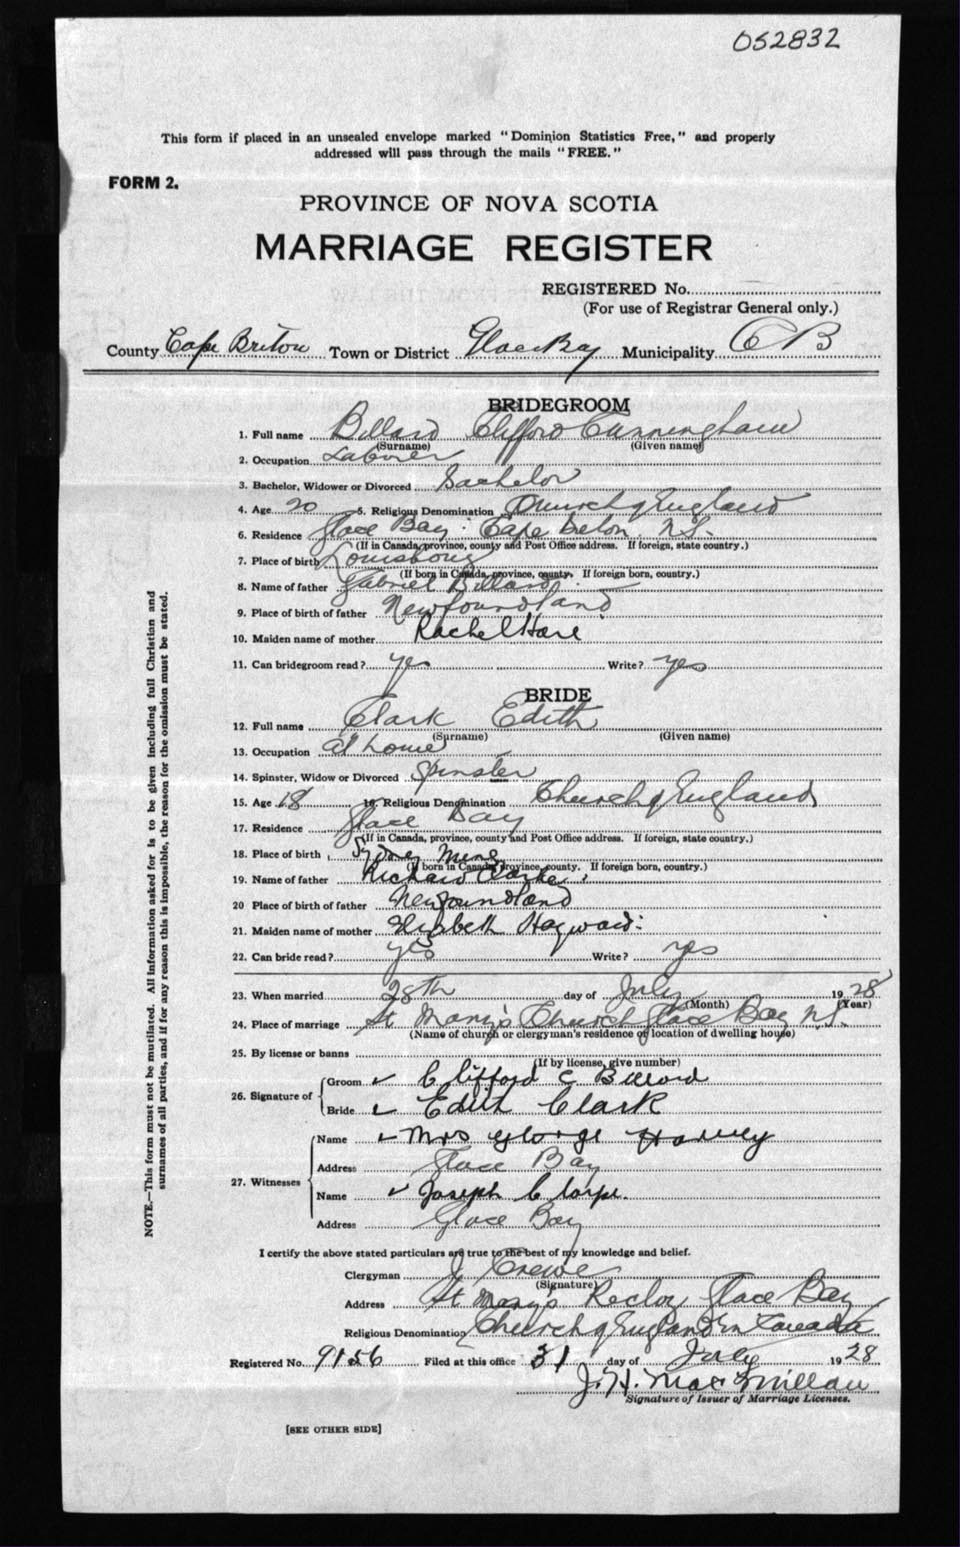 052832
This form if placed in an unsealed envelope marked "Dominion Statistics Free," and properly
addressed will pass through the mails "FREE."
FORM 2.
PROVINCE OF NOVA SCOTIA
MARRIAGE REGISTER
REGISTERED No.
(For use of Registrar General only.)
County Cape Briton Town or District Glace Bay Municipality C B
BRIDEGROOM
1. Full name Billard Clifford Cunningham
(Surname) (Given name)
2. Occupation Laborer
3. Bachelor, Widower or Divorced Bachelor
4. Age 20 5. Religious Denomination Church of England
6. Residence Glace Bay Cape Beton N.S.
(If in Canada, province, county and Post Office address. If foreign, state country.)
7. Place of birth Louisbourg
(If born in Canada, province, county. If foreign born, country.)
8. Name of father Gabriel Billard
9. Place of birth of father Newfoundland
10. Maiden name of mother Rachel Hare
11. Can bridegroom read? yes Write? yes
BRIDE
12. Full name Clark Edith
(Surname) (Given name)
13. Occupation at home
14. Spinster, Widow or Divorced Spinster
15. Age 18 16. Religious Denomination Church of England
17. Residence Glace Bay
(If in Canada, province, county and Post Office address. If foreign, state country.)
18. Place of birth Sydney Mines
(If born in Canada, province, county. If foreign born, country.)
19. Name of father Richard Clarke
20 Place of birth of father Newfoundland
21. Maiden name of mother Elizabeth Hayward
22. Can bride read? yes Write? yes
23. When married 28th day of July 1928
(Month) (Year)
24. Place of marriage St Mary's Church Glace Bay N.S.
(Name of church or clergyman's residence or location of dwelling house)
25. By license or banns
(If by license, give number)
26. Signature of Groom Clifford C Billard
Bride Edith Clark
27. Witnesses Name Mrs George Harvey
Address Glace Bay
Name Joseph
Address Glace Bay
I certify the above stated particulars are true to the best of my knowledge and belief.
Clergyman J Crewe
(Signature)
Address St Mary's Rector Glace Bay
Religious Denomination Church of England in Canada
Registered No. 9156 Filed at this office 31 day of July 1928
J. H. MacMillan
Signature of Issuer of Marriage Licenses.
[SEE OTHER SIDE]
NOTE.—This form must not be mutilated. All information asked for is to be given including full Christian and
surnames of all parties, and if for any reason this is impossible, the reason for the omission must be stated.